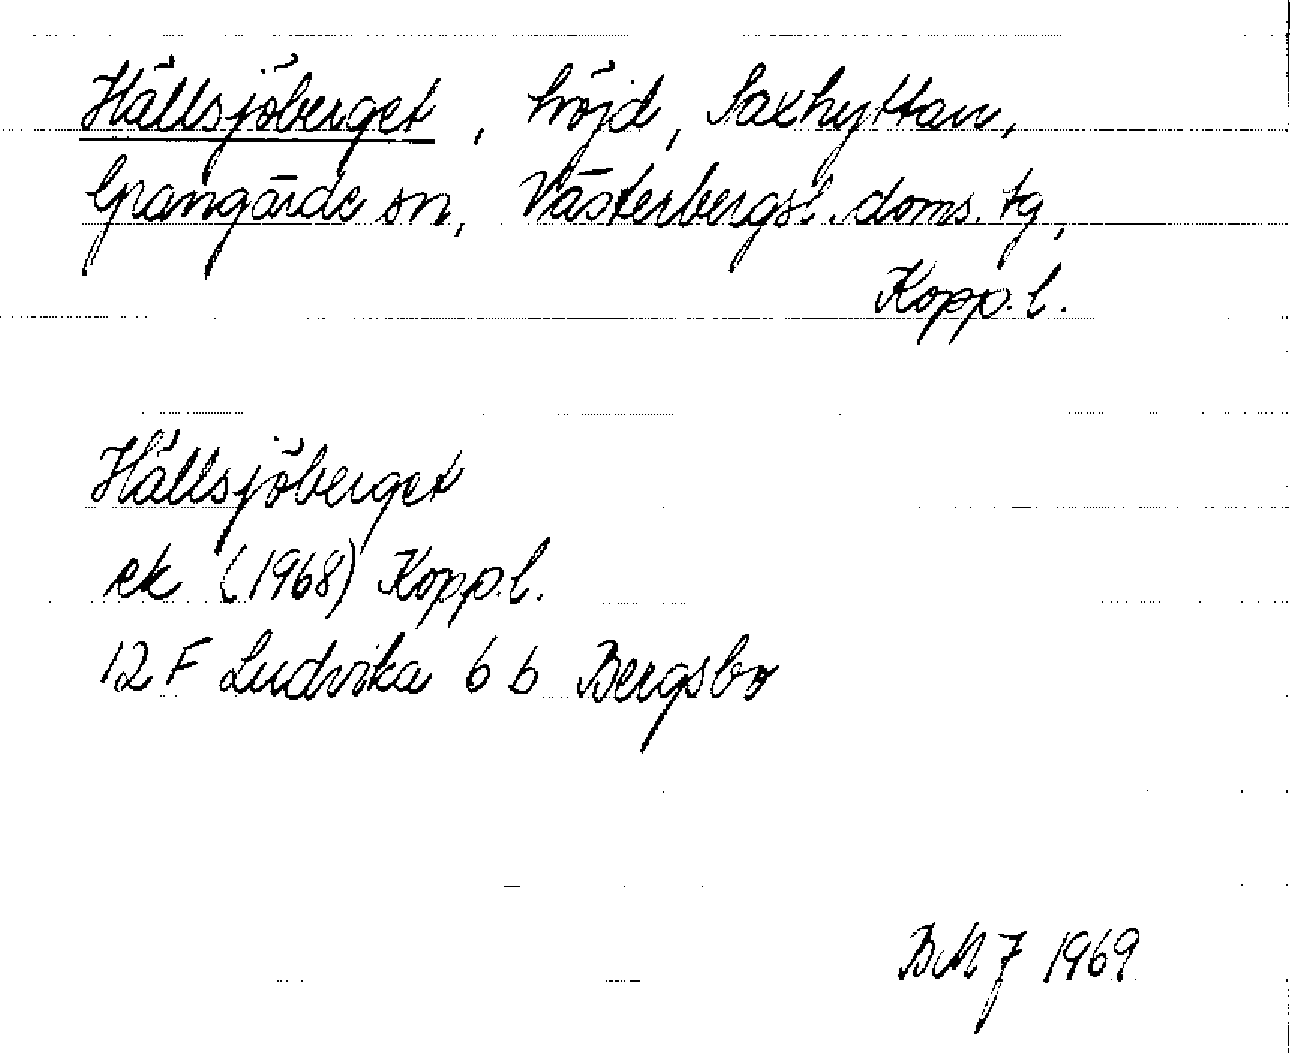 Hällsjöberget, höjd, Saxhyttan,
Grangärde sn, Västerbergsl. doms. tg,
Kopp. l.
Hällsjöberget
ek (1968) Kopp. l.
12 F Ludvika 6 b Bergsbo
BMJ 1969